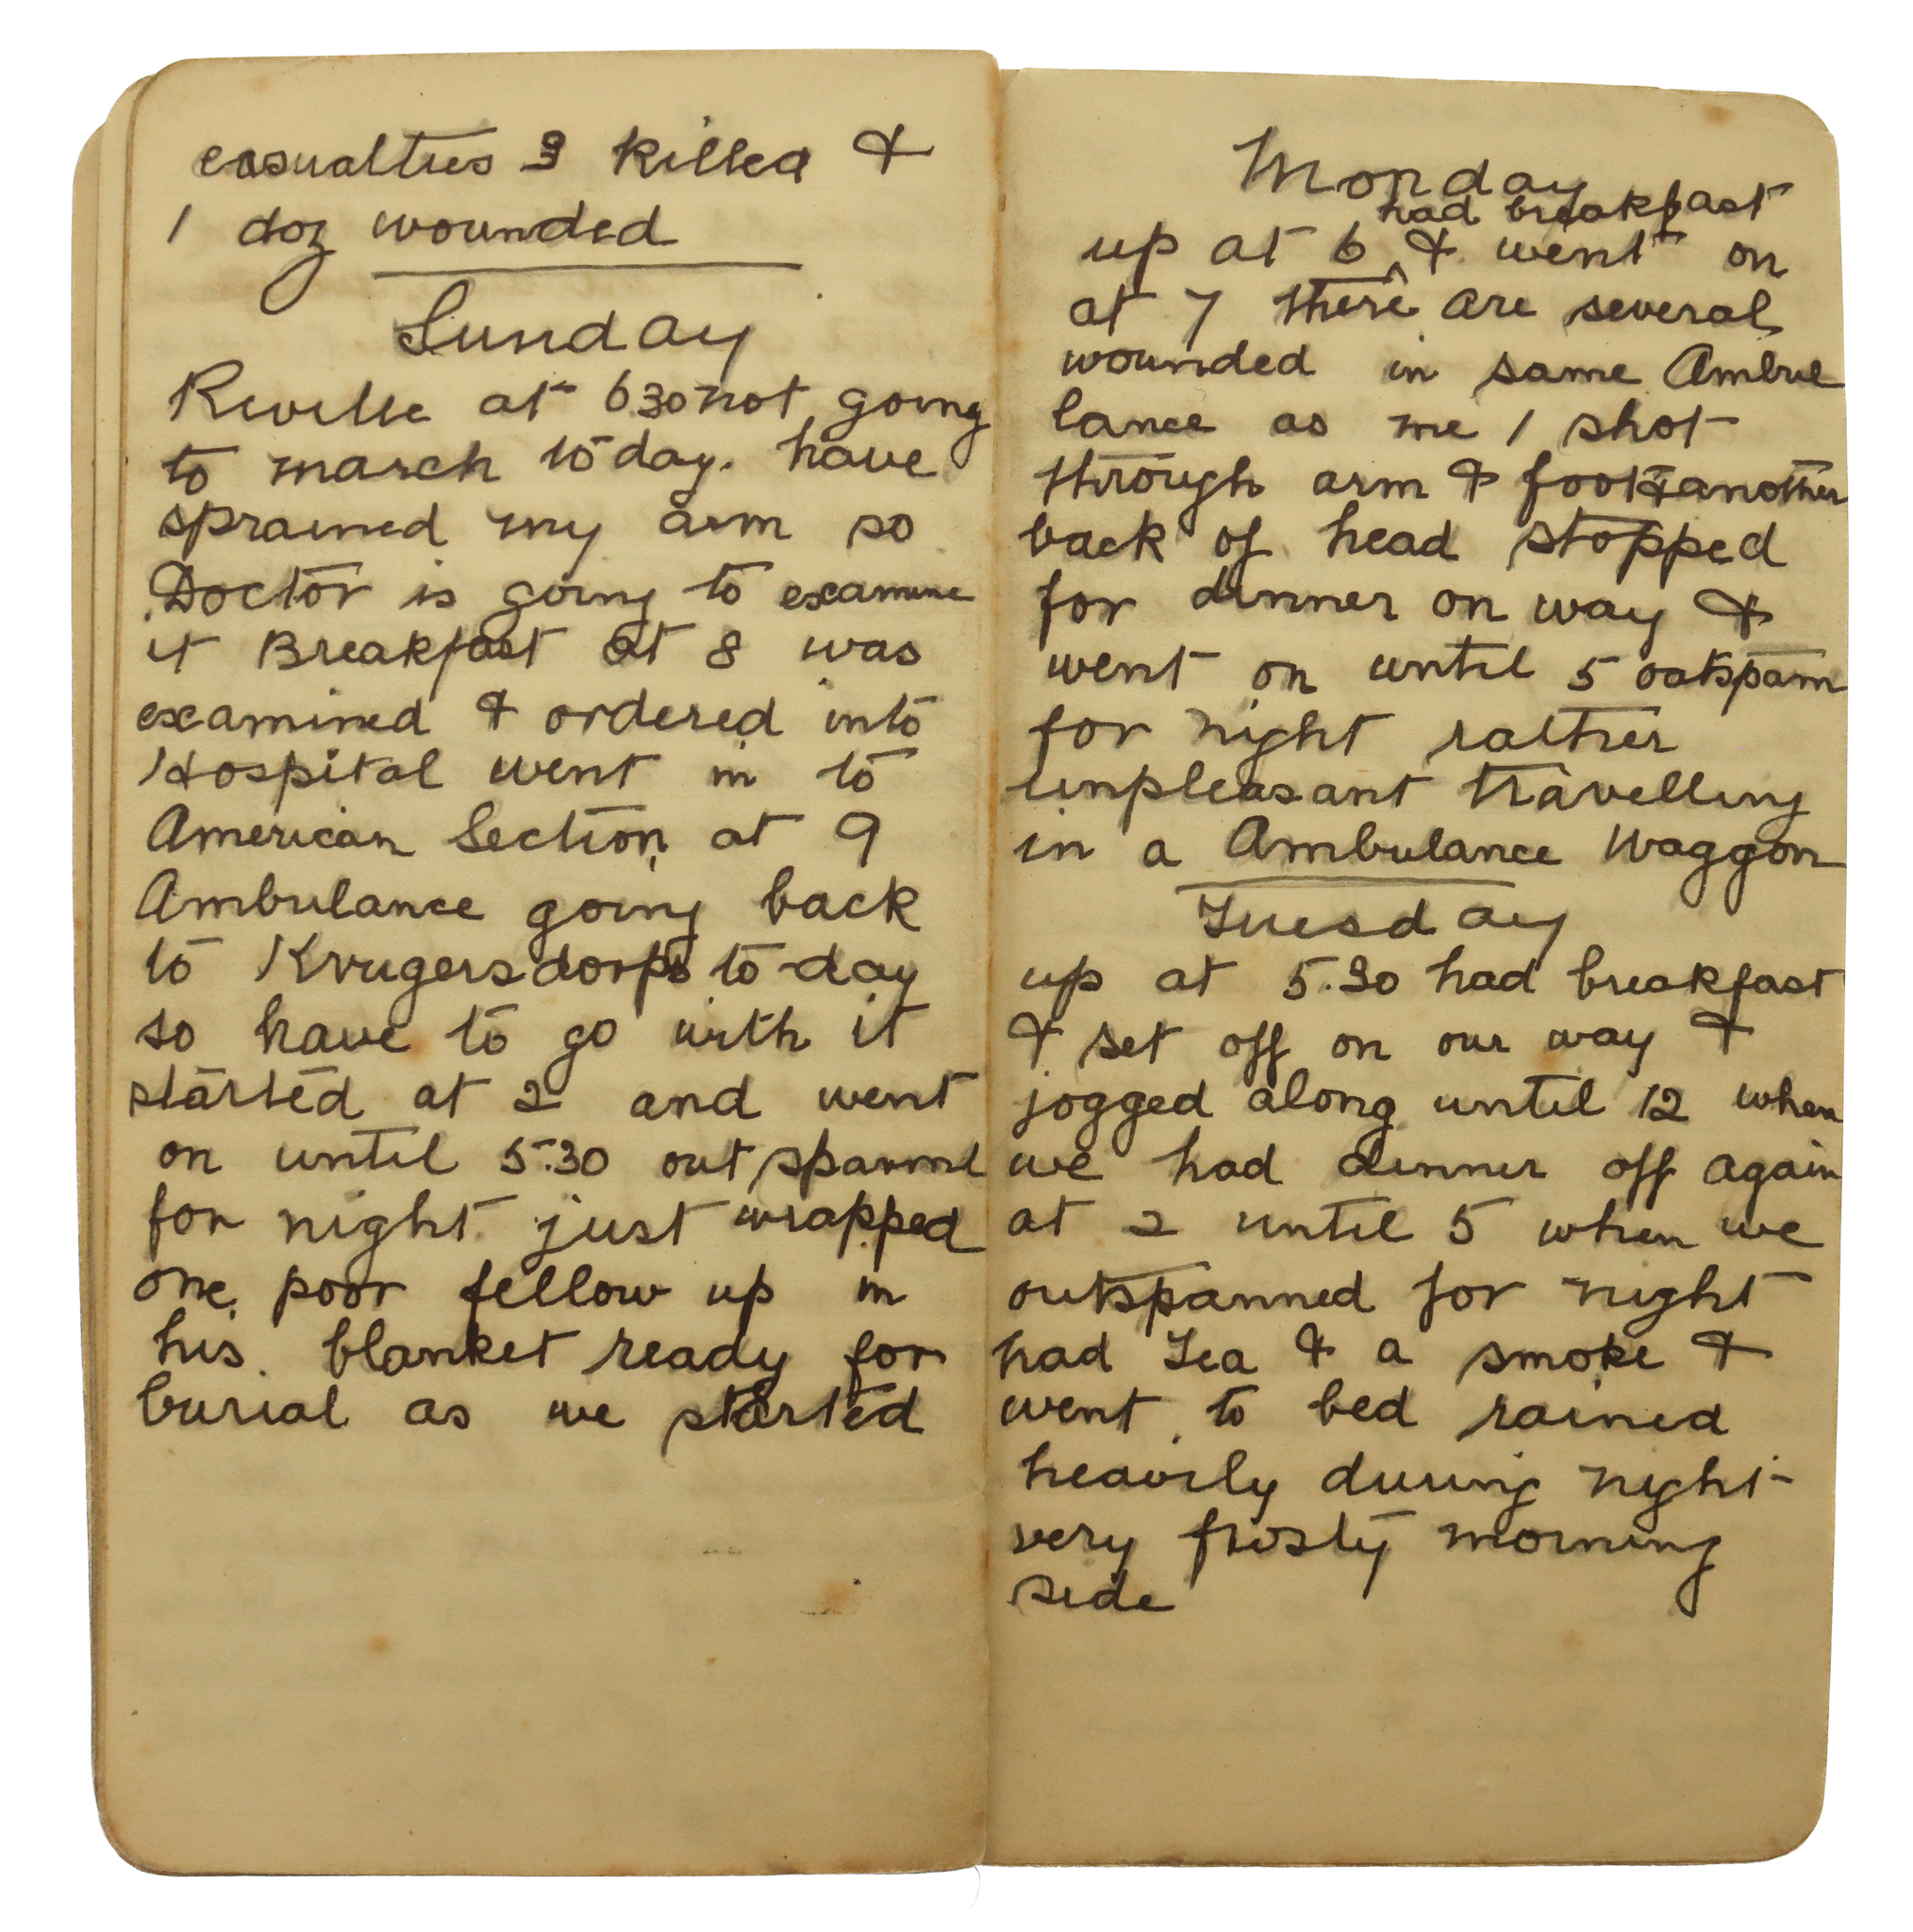 casualties 3 killed &
1 doz wounded
Sunday
Reville at 630 not going
to march to day. have
sprained my arm so
Doctor is going to examine
it Breakfast at 8 was
examined & ordered into
Hospital went in to
American Section at 9
Ambulance going back
to Krugersdorp to-day
so have to go with it
started at 2 and went
on until 5.30 out spanned
for night just wrapped
one poor fellow up in
his blanket ready for
burial as we started
Monday
had breakfast
up at 6 ^ & went on
at 7 there are several
wounded in same Ambu
lance as me 1 shot
through arm & foot & another
back of head stopped
for dinner on way &
went on until 5 outspann
for night rather
unpleasant travelling
in a Ambulance Waggon
Tuesday
up at 5.30 had breakfast
& set off on our way &
jogged along until 12 when
we had dinner off again
at 2 until 5 when we
outspanned for night
had Tea & a smoke &
went to bed rained
heavily during night
very frosty morning
side